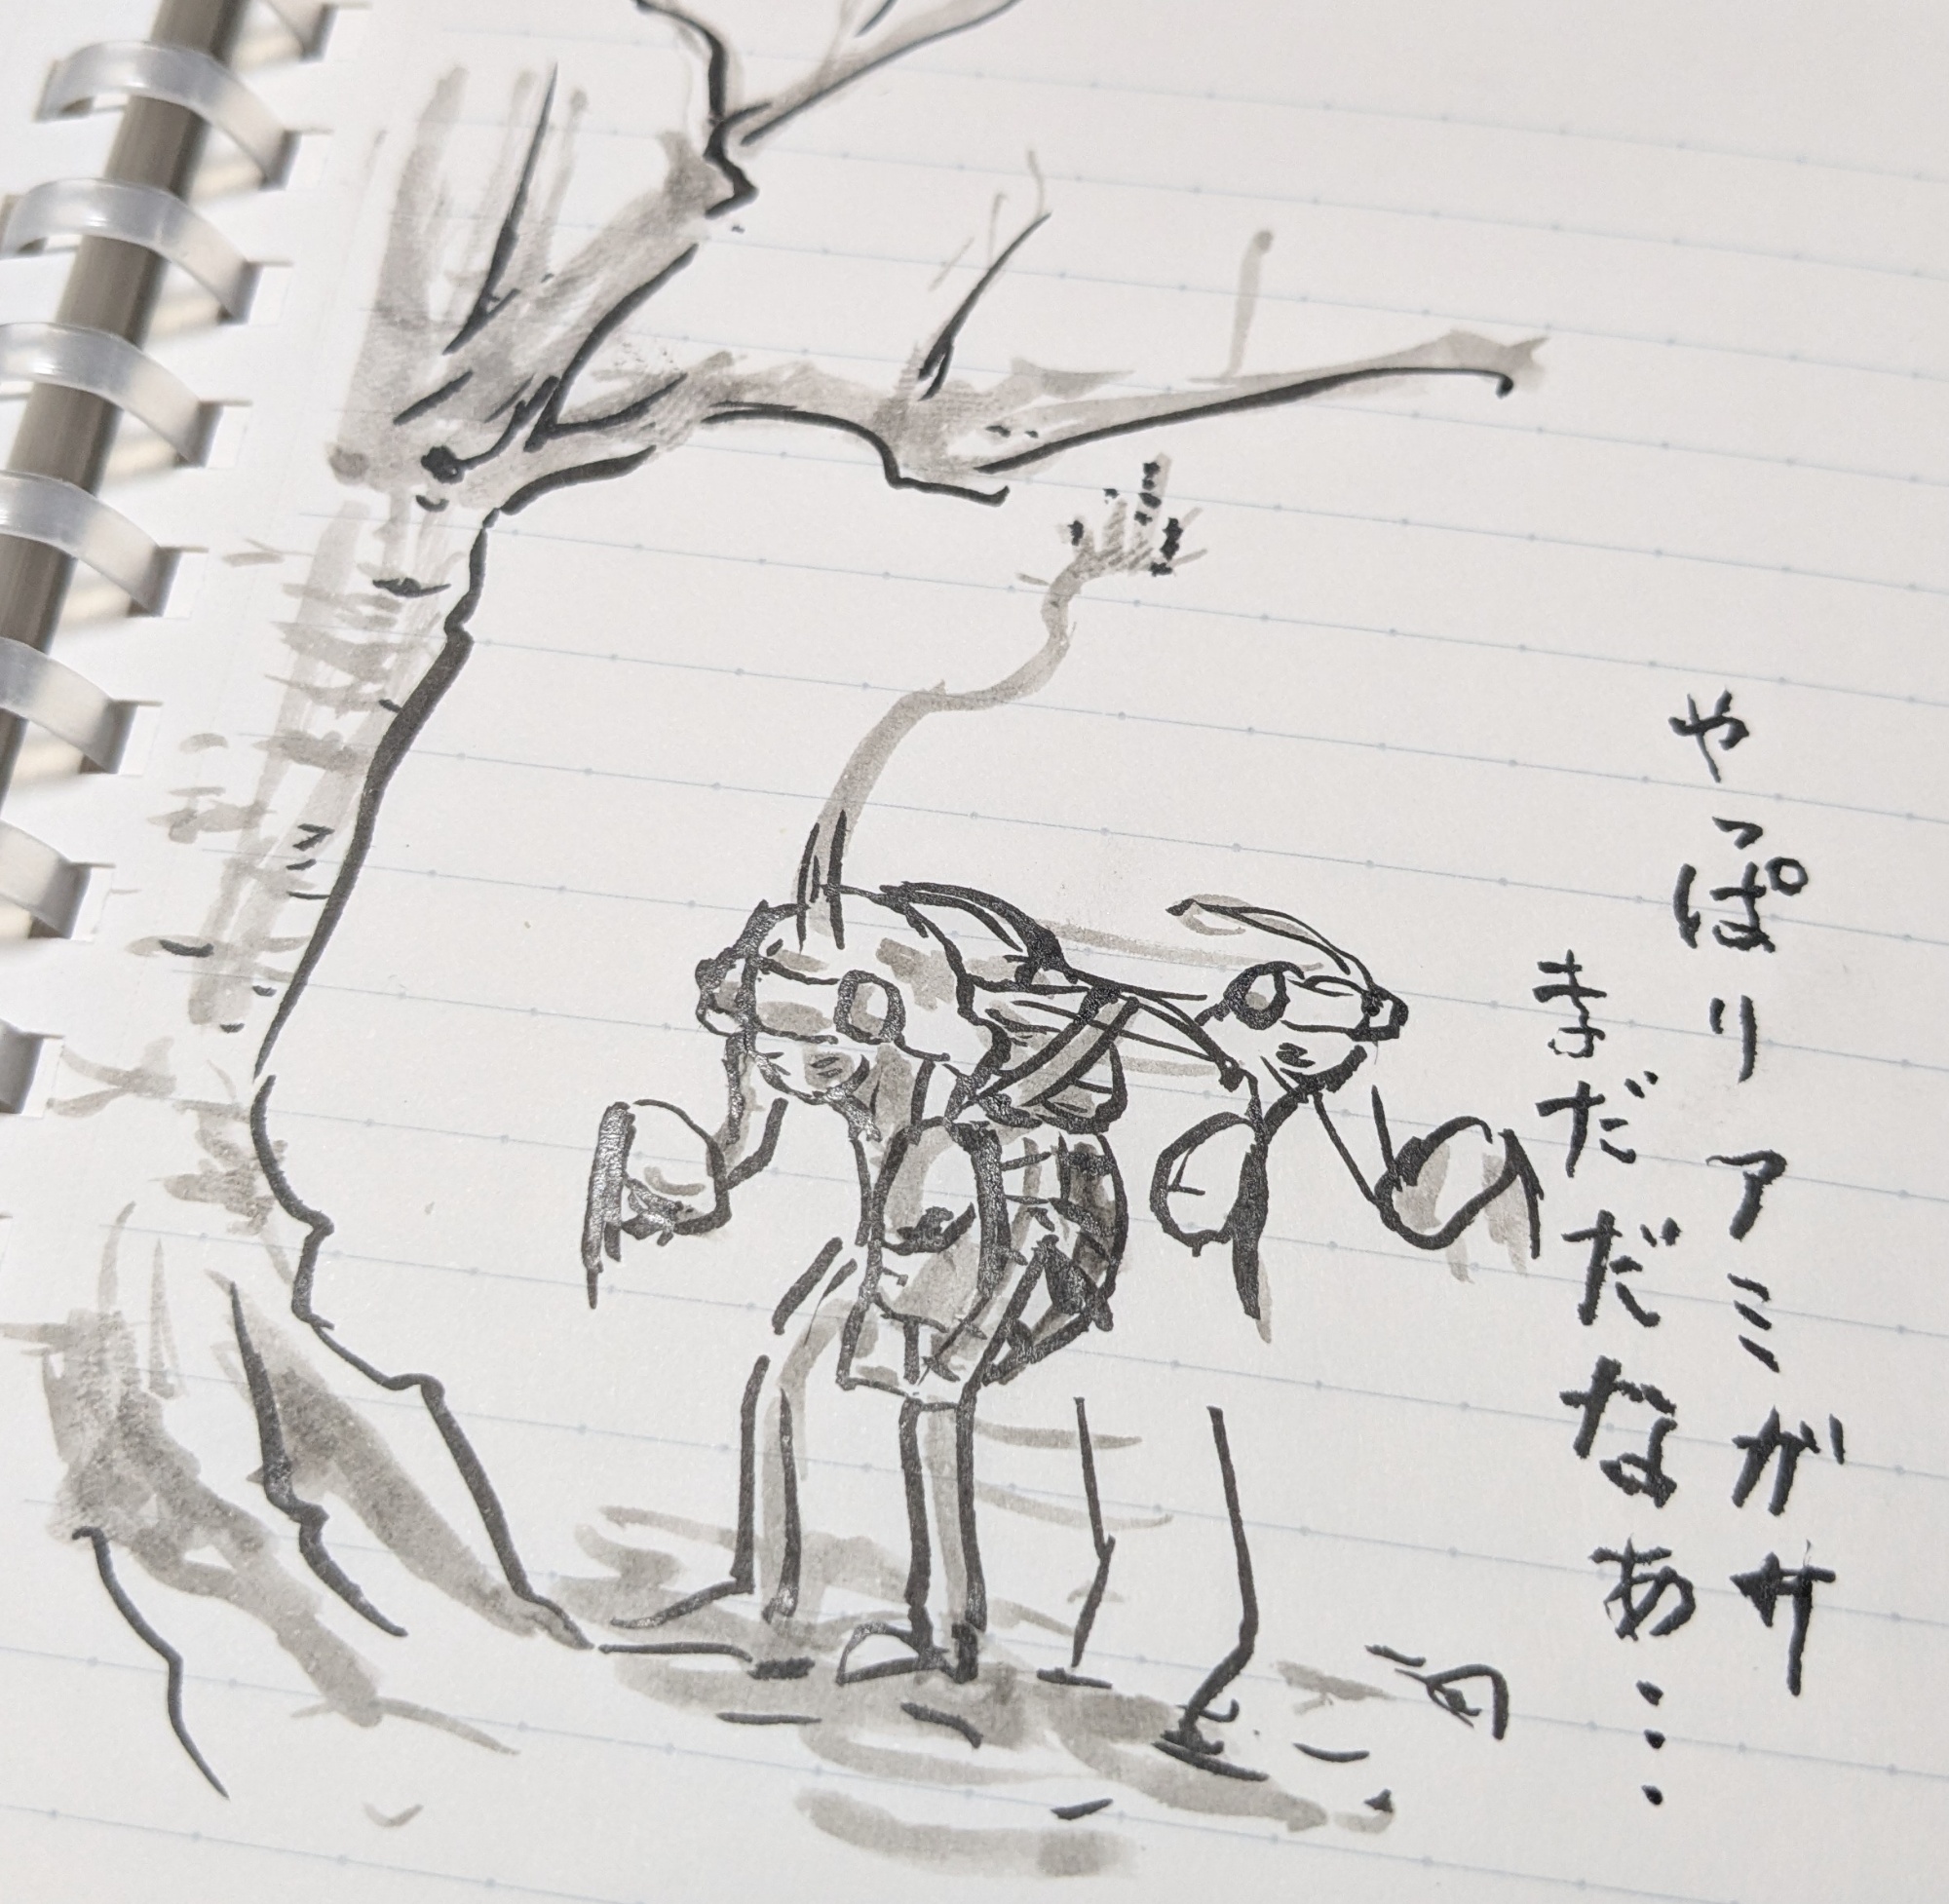 やっぱりアミガサ
まだだなあ…